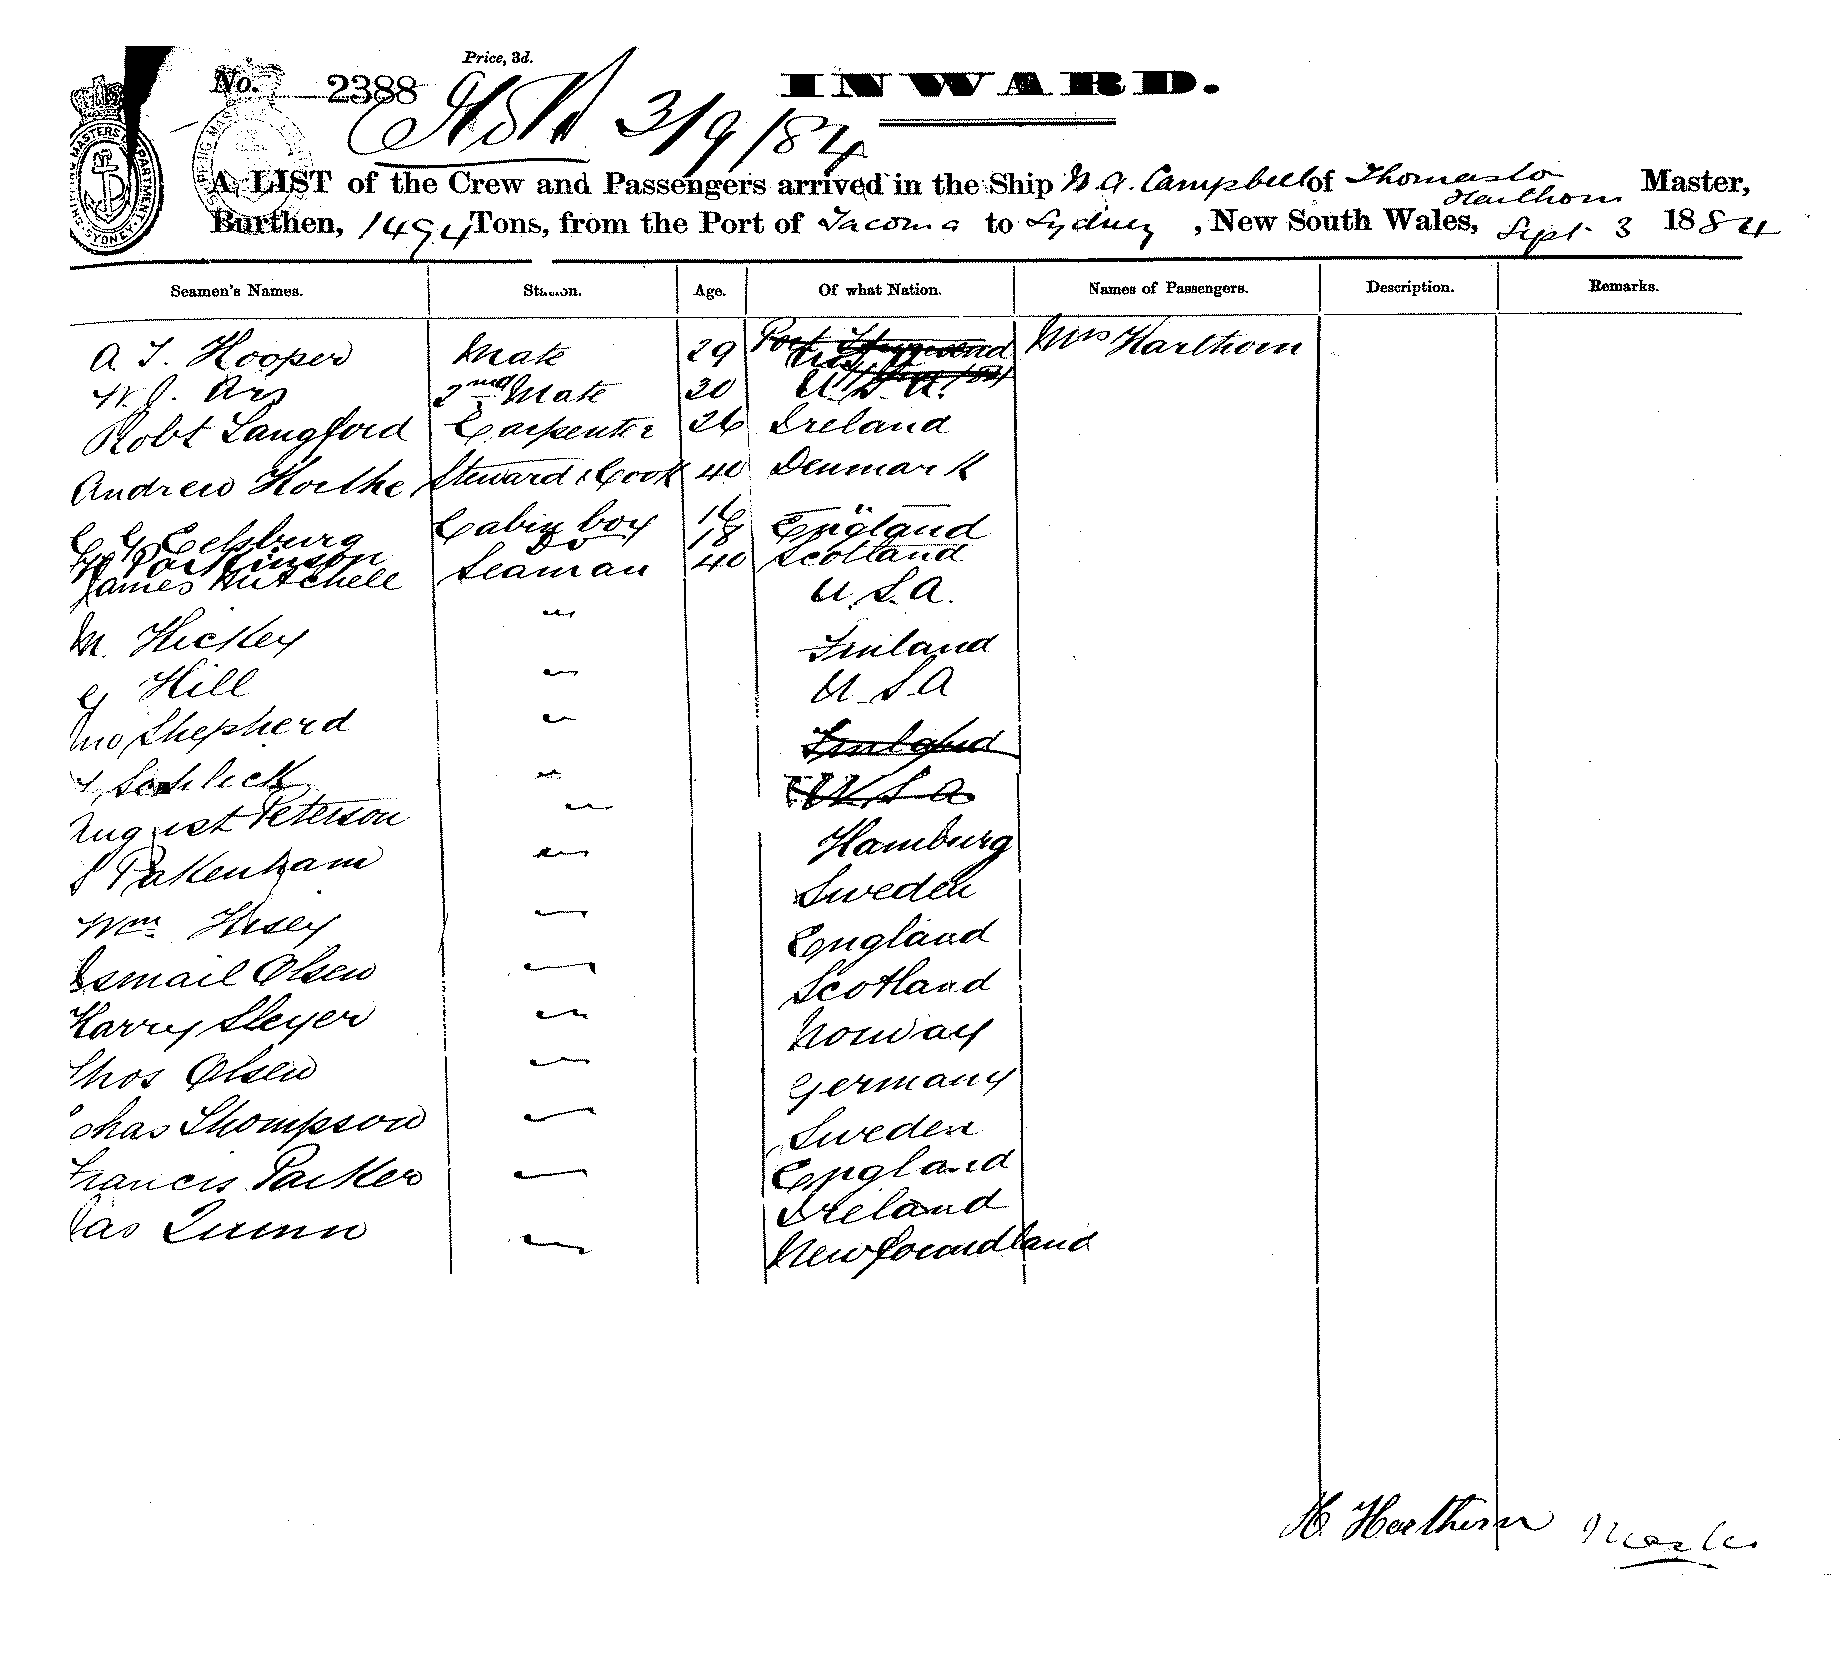 Price, 3d.
No. 2388 INWARD.
3/9/84
A LIST of the Crew and Passengers arrived in the Ship W. A. Campbell of Thomasto Harthorn Master,
Burthen, 1494 Tons, from the Port of Tacoma to Sydney, New South Wales, Sept 3 1884
Seamen's Names. Station. Age. Of what Nation. Names of Passengers. Description. Remarks.
A T. Hooper Mate 29 Port Townsend Mrs Harthorn
2nd Mate 20 U.S.A.
Robt Langford Carpenter 26 Ireland
Andrew Steward & Cook 40 Denmark
Cabin boy 16 England
Parkinson Do 18 Scotland
James Mitchell Seaman 40 U.S.A.
M. Hickey " Finland
G Hill " U S A
Jno Shepherd " Finland
Schlick " U S A
August Peterson " Hamburg
Pakenham " Sweden
Wm Husey " England
Ismail Olsen " Scotland
Harry Sleyer " Norway
Thos Olsen " Germany
Chas Thompson " Sweden
Francis Parker " England
Jas Quinn " Ireland
Newfoundland
H. Harthorn Master